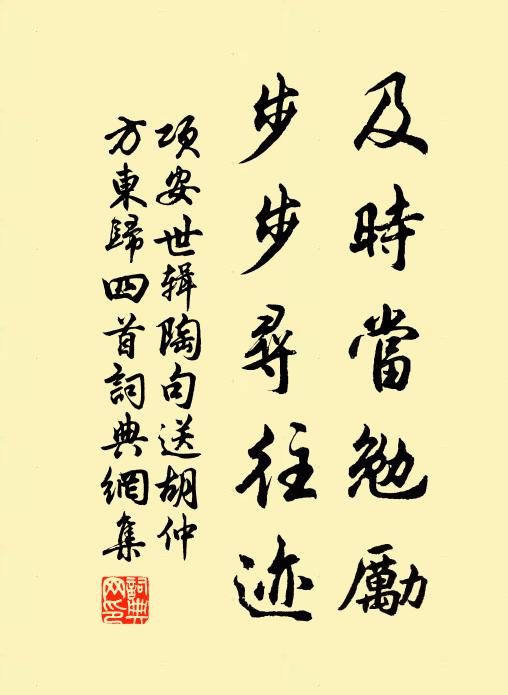 及時當勉勵
步步尋往迹
項安世辑陶句送胡仲
方東歸四首詞典網集
詞典
网印